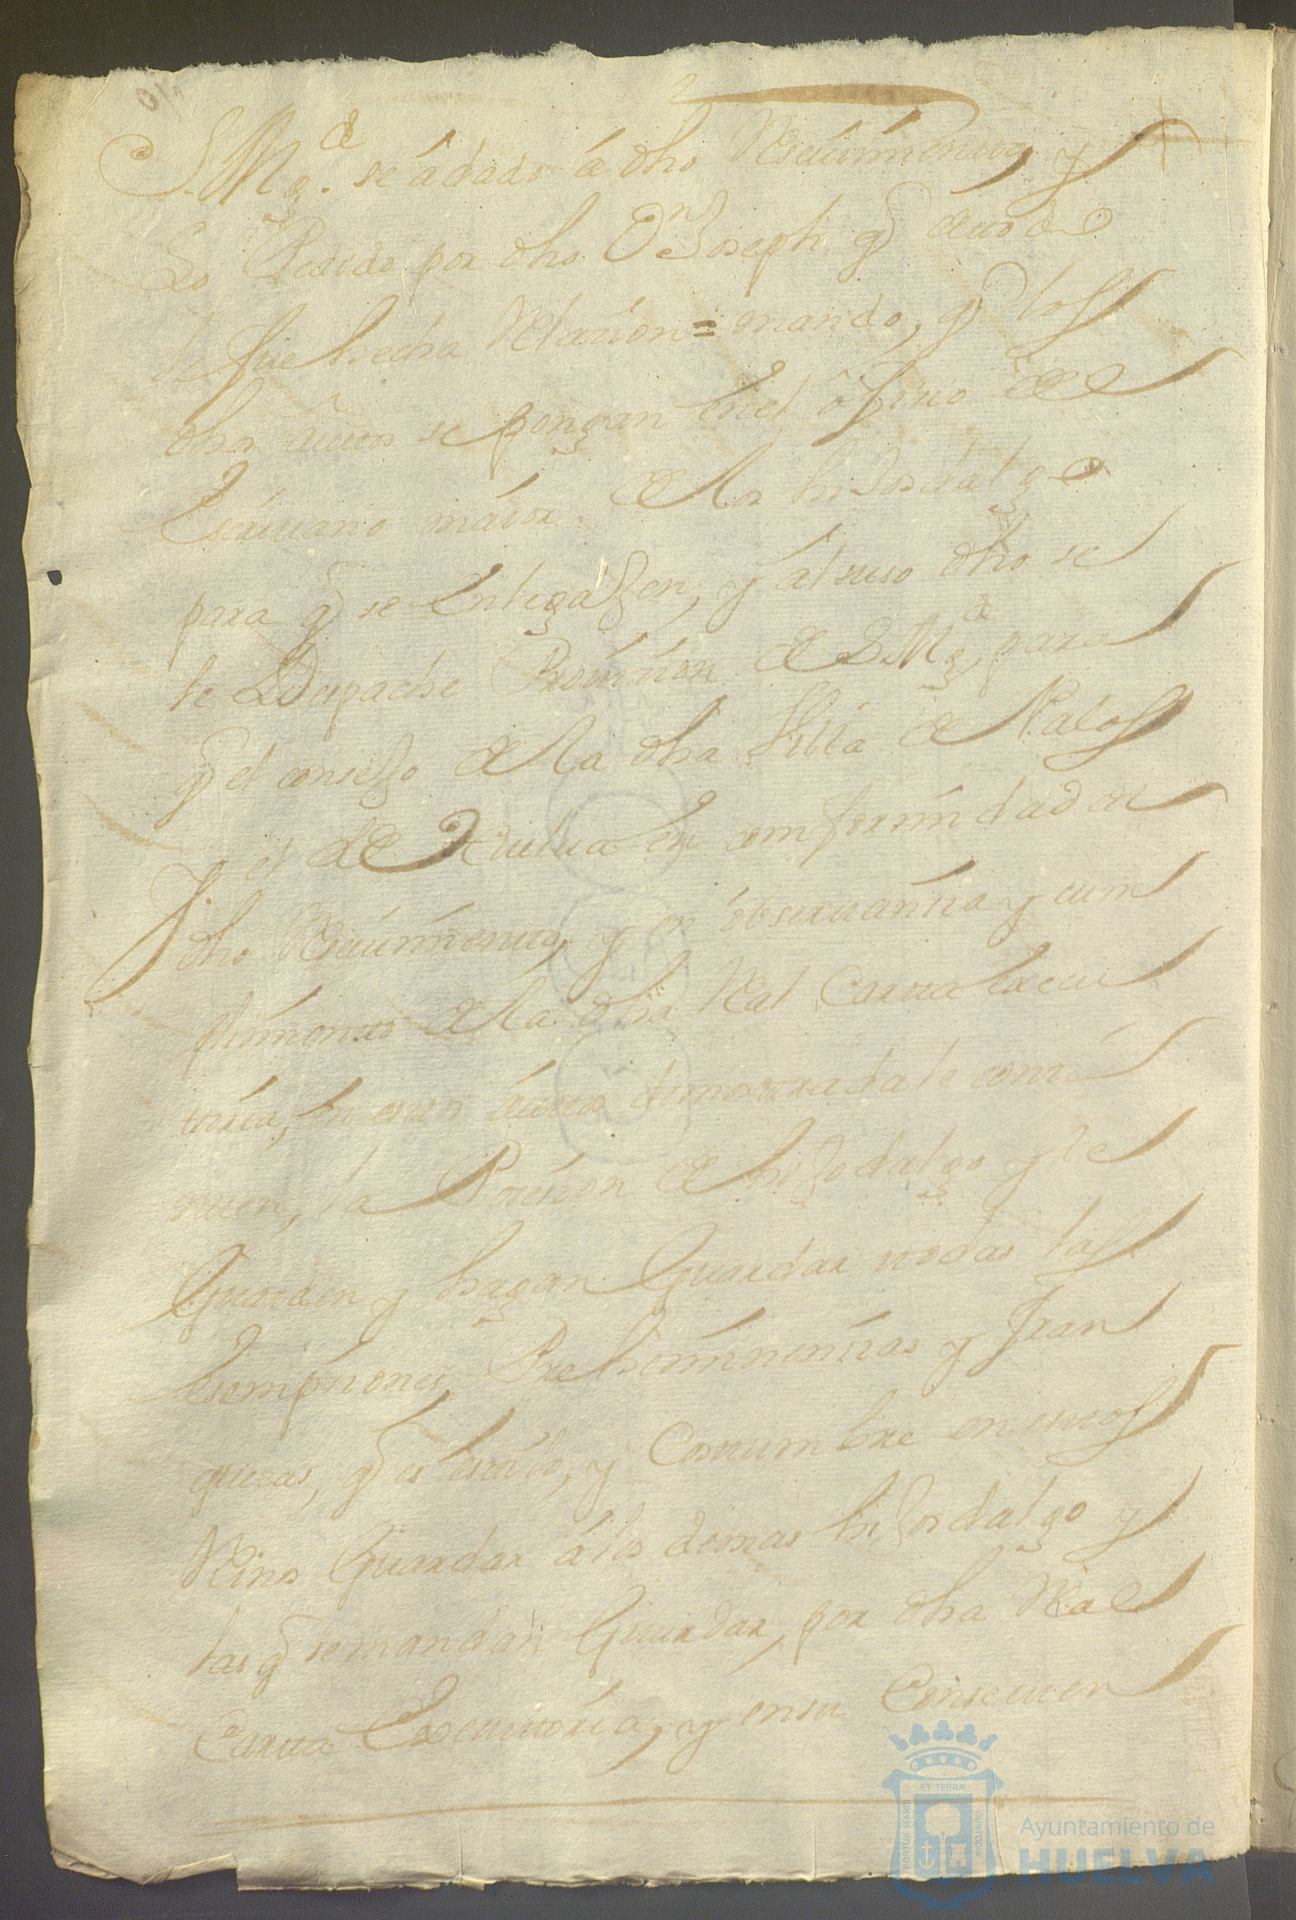 S. Mgd. se á dado á dho Recivimiento, y
Lo Pedido por dho Dn Joseph q de uso
le fue hecha Relacion = mando, q los
dhos autos se pongan en el ofizio del
Escrivano maior de los hijosdalgo
para q se entregassen, y al suso dho se
le Despache Provision de S. Mgd, para
q el consejo de la dha Villa de Palos
y el de Huelva en comformidad de
dho Recivimiento, y en observancia y cum
plimiento de la dha Real Carta execu
toria, en estos autos demostrada le conti
nuen, la Posesion de hijodalgo y le
Guarden y hagan Guardar todas las
Esempsiones, Preheminencias y fran
quezas, q es estilo, y Costumbre en estos
Reinos Guardar á los demas hijosdalgo y
las q se mandan Guardar, por dha Real
Carta Executoria, y en su Consecuen
ET TERRÆ
PORTUS MARIS
CUSTODIA
Ayuntamiento de
HUELVA